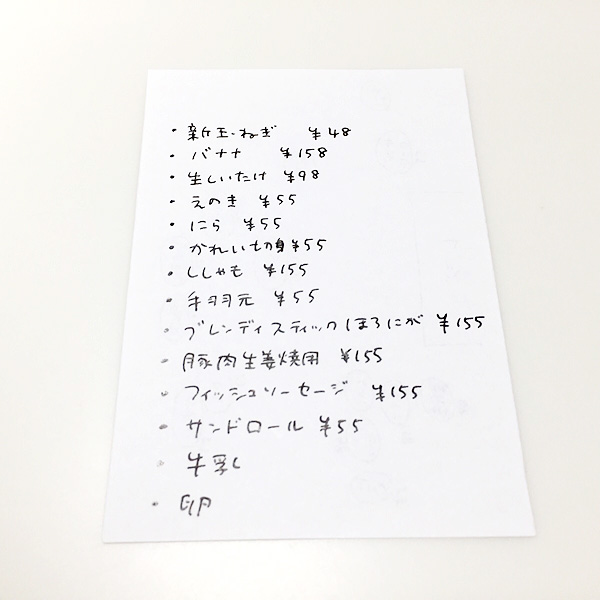 ・新玉ねぎ ¥48
・バナナ ¥158
・生しいたけ ¥98
・えのき ¥55
・にら ¥55
・かれい切身¥55
・ししゃも ¥155
・手羽元 ¥55
・ブレンディスティックほろにが ¥155
・豚肉生姜焼用 ¥155
・フィッシュソーセージ ¥155
・サンドロール ¥55
・牛乳
・卵